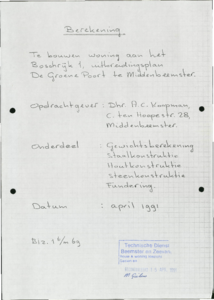 Berekening.
Te bouwen woning aan het
Bosschrijk 1, uitbreidingsplan
De Groene Poort te Middenbeemster.
Opdrachtgever: Dhr. A.C. Koopman,
C. ten Hoopestr. 28,
Middenbeemster.
Onderdeel : Gewichtsberekening
Staalkonstruktie
Houtkonstruktie
Steenkonstruktie
Fundering.
Datum : april 1991
Blz. 1 t/m 69
Technische Dienst